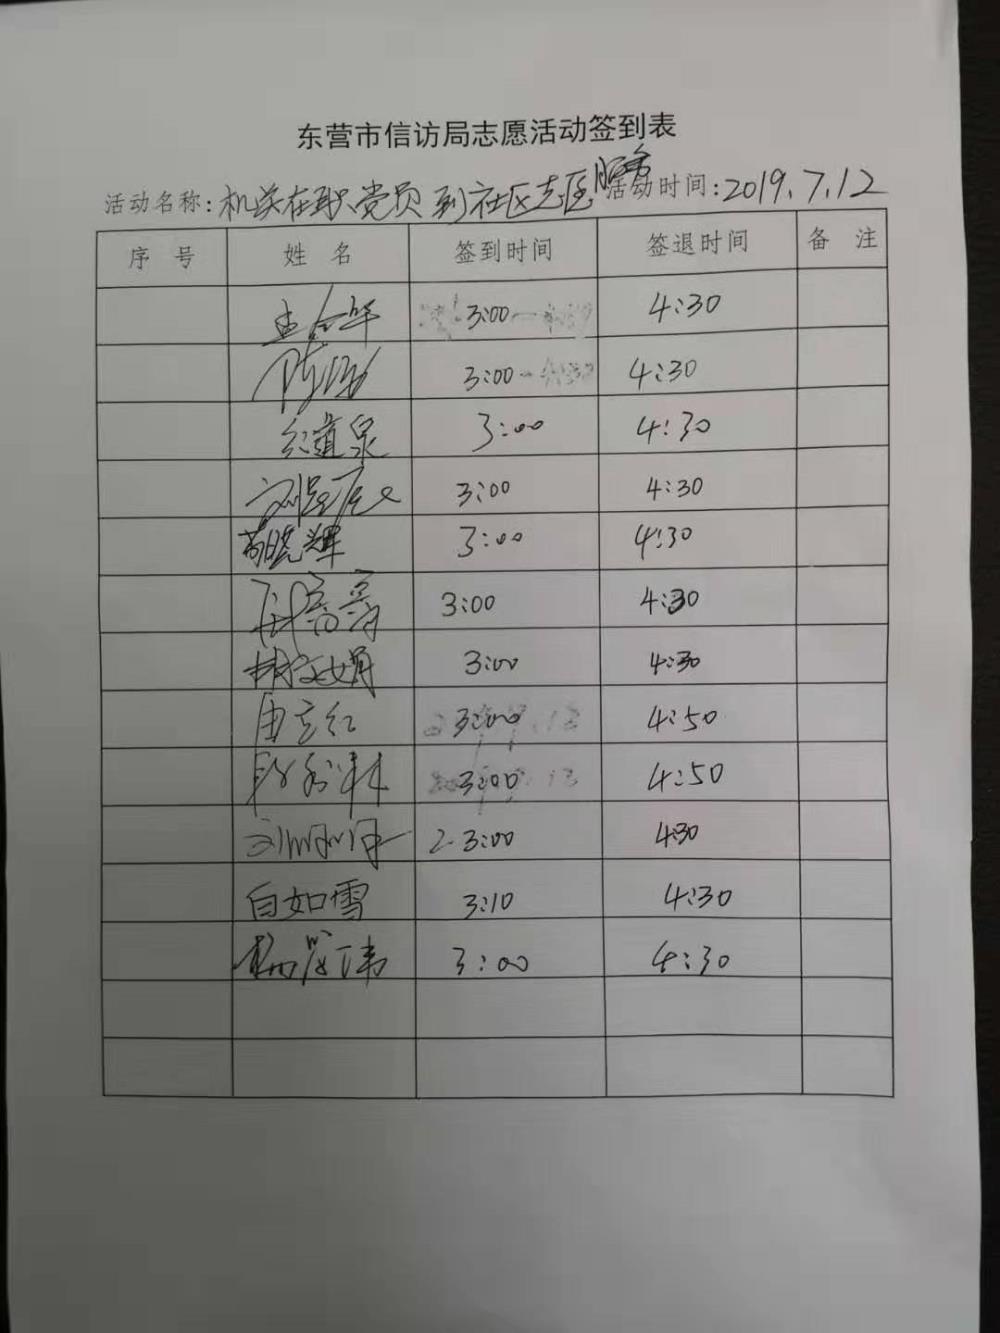 东营市信访局志愿活动签到表
活动名称:机关在职党员到社区志愿服务 活动时间:2019.7.12
序 号 姓 名 签到时间 签退时间 备 注
3:00 4:30
3:00 4:30
道泉 3:00 4:30
3:00 4:30
晓辉 3:00 4:30
3:00 4:30
文娟 3:00 4:30
3:00 4:50
3:00 4:50
2 3:00 4:30
白如雪 3:10 4:30
3:00 4:30